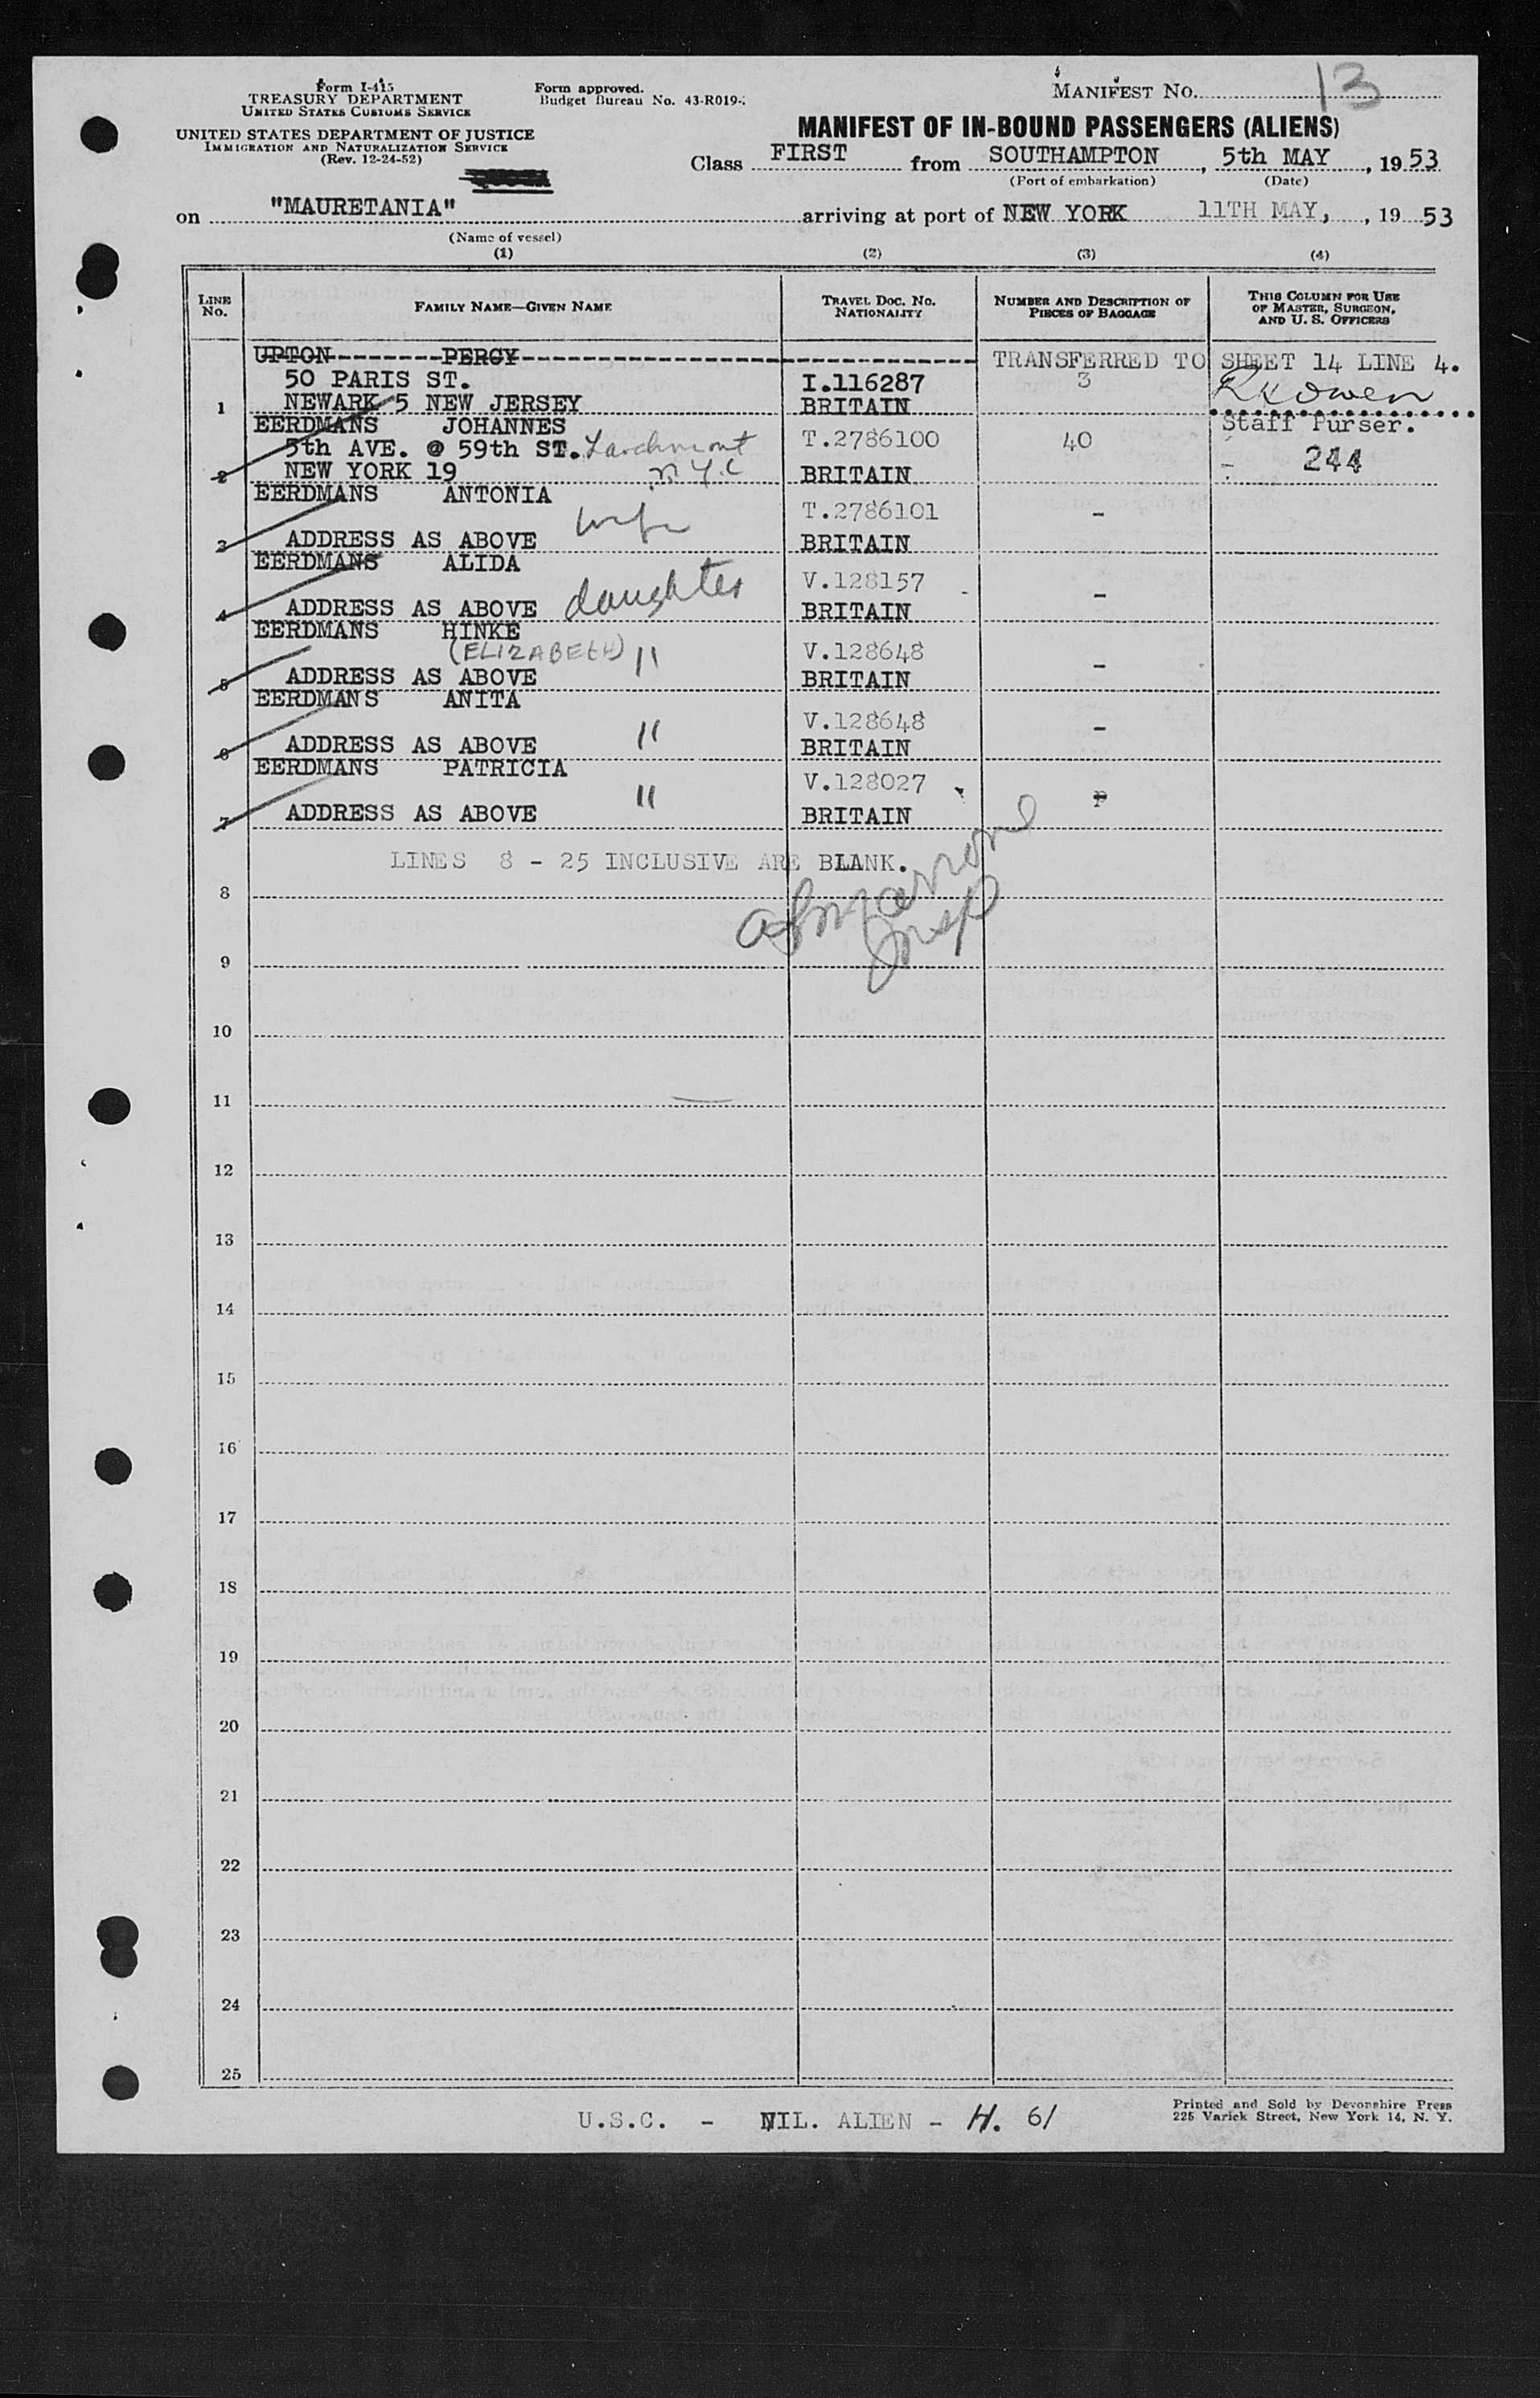 Form I-415
TREASURY DEPARTMENT
UNITED STATES CUSTOMS SERVICE
UNITED STATES DEPARTMENT OF JUSTICE
IMMIGRATION AND NATURALIZATION SERVICE
(Rev. 12-24-52)
Form approved.
Budget Bureau No. 43-R019-
MANIFEST NO. 13
MANIFEST OF IN-BOUND PASSENGERS (ALIENS)
Class FIRST from SOUTHAMPTON, 5th MAY, 1953
(Port of embarkation) (Date)
on "MAURETANIA" arriving at port of NEW YORK 11TH MAY, , 1953
(Name of vessel)
(1) (2) (3) (4)
LINE No. FAMILY NAME—GIVEN NAME TRAVEL DOC. NO. NATIONALITY NUMBER AND DESCRIPTION OF PIECES OF BAGGAGE THIS COLUMN FOR USE OF MASTER, SURGEON, AND U. S. OFFICERS
UPTON--------PERCY------------------------------ TRANSFERRED TO SHEET 14 LINE 4.
50 PARIS ST. I.116287 3
1 NEWARK 5 NEW JERSEY BRITAIN
EERDMANS JOHANNES Staff Purser.
5th AVE. @ 59th ST. Larchmont T.2786100 40
2 NEW YORK 19 N.Y.C BRITAIN - 244
EERDMANS ANTONIA
wife T.2786101 -
3 ADDRESS AS ABOVE BRITAIN
EERDMANS ALIDA
daughter V.128157 -
4 ADDRESS AS ABOVE BRITAIN
EERDMANS HINKE
(ELIZABETH) " V.128648 -
5 ADDRESS AS ABOVE BRITAIN
EERDMANS ANITA
" V.128648 -
6 ADDRESS AS ABOVE BRITAIN
EERDMANS PATRICIA
" V.128027
7 ADDRESS AS ABOVE BRITAIN
LINES 8 - 25 INCLUSIVE ARE BLANK.
8
Insp
9
10
11
12
13
14
15
16
17
18
19
20
21
22
23
24
25
U.S.C. - NIL. ALIEN - H. 61
Printed and Sold by Devonshire Press
225 Varick Street, New York 14, N. Y.